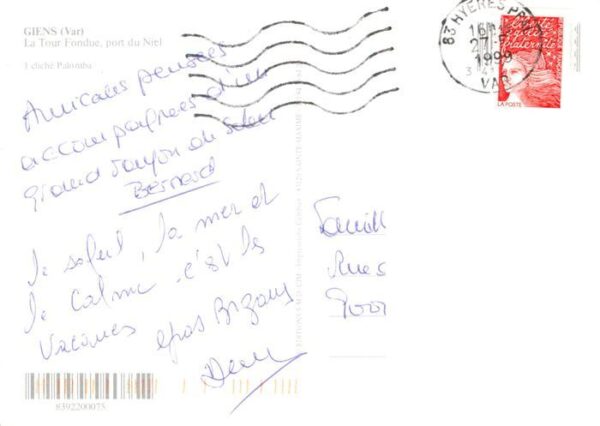 GIENS (Var)
La Tour Fondue, port du Niel
1 cliché Palomba
Amicales pensées
accompagnées d'un
grand rayon de soleil
Bernard
le soleil, la mer et
le calme c'est les
vacances gros Bizous
83 HYERES PPAL
16H
27-7
1999
VAR
Liberté
égalité
fraternité
LA POSTE
8392200075